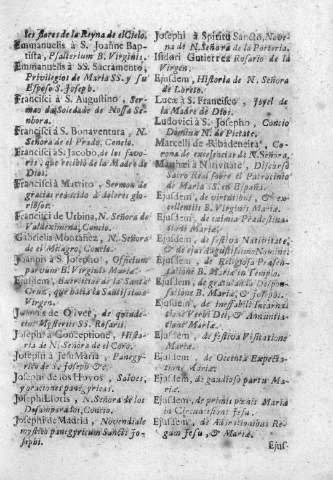 ses flores de la Reyna de el Cielo.
Emmanuelis à S. Joanne Baptista, Psalterium B. Virginis.
Emmanuelis à SS. Sacramento,
Privilegios de Maria SS. y su
Esposo S. Joseph.
Francisci à S. Augustino, Sermao da Soledade de Nossa Senhora.
Francisci à S. Bonaventura, N.
Señora de el Prado, Concio.
Francisci à S. Jacobo, de los favores, que recibió de la Madre de
Dios.
Francisci à Sermon de
gracias
Francisci de Urbina, N. Señora de
Valdeximena, Concio.
Gabrielis Montañez, N. Señora
de el Milagro, Concio.
Joannis à S. Josepho, Officium
parvum B. Virginis Mariæ.
Ejusdem, de la Santa
Cruz, que hacia la Santissima
Virgen.
de Olivet, de quindecim Mysteriis SS. Rosarii.
Josephi à Conceptione, Historia de N. Señora de el Coro.
Josephi à Jesu Maria, Panegyrico de S. Joseph &c.
Josephi de los Hoyos, Salves,
y oraciones panegyricas.
Josephi Lotis, à N. Señora de los
Desamparados, Concio.
Josephi de Madrid, Novendiale
mystico panegyricum Sancti Josephi.
Josephi à Spiritu Sancto, Novena de N. Señora de la Porteria.
Isidori Gutierrez Rosario de la
Virgen.
Ejusdem, Historia de N. Señora
de Loreto.
Lucæ à S. Francisco, Joyel de
la Madre de Dios.
Ludovici à S. Josepho, Concio
Dominæ N. de Pietate.
Marcelli de Ribadeneira, Corona de excelencias de N. Señora.
à Nativitate, Discurso
Sacro Real sobre el Patrocinio
de Maria SS. en España.
Ejusdem, de virtutibus, & excellentiis B. Virginis Mariæ.
Ejusdem, de ealmia Prædestinationis Mariæ.
Ejusdem, de festiva Nativitate,
& de ejus Augustissimo Nomine.
Ejusdem, de Religiosa Præsentatione B. Mariæ in Templo.
Ejusdem, de gratulanda Desponsatione B. Mariæ, & Josephi.
Ejusdem, de ineffabili Incarnatione Verbi Dei, & Annuntiatione Mariæ.
Ejusdem, de festiva Visitatione
Mariæ.
Ejusdem, de Expectatione Mariæ.
Ejusdem, de gaudioso partu Mariæ.
Ejusdem, de Mariæ
in Circumcisione Jesu.
Ejusdem, de Adorationibus Regum Jesu, & Mariæ.
Ejus-